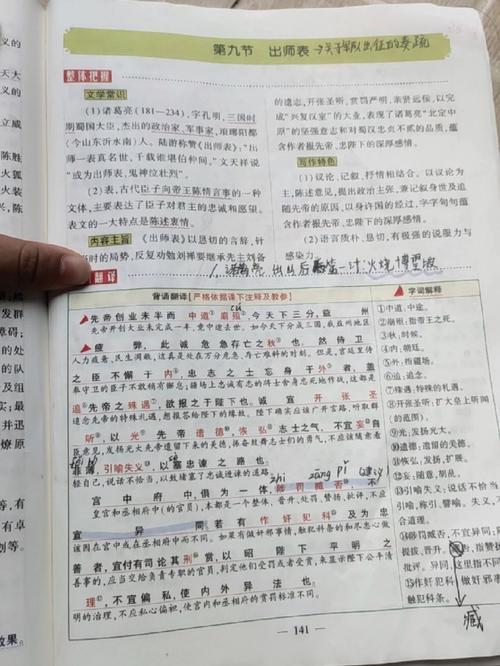 第九节 出师表 →关于军队出征的奏疏
整体把握
文学常识
(1)诸葛亮(181—234),字孔明,三国时
期蜀国大臣,杰出的政治家、军事家,琅琊阳都
(今山东沂水南)人。陆游称赞《出师表》:“出
师一表真名世,千载谁堪伯仲间。”文天祥说
“或为出师表,鬼神泣壮烈。”
(2)表,古代臣子向帝王陈情言事的一种
文体,主要表达了臣子对君主的忠诚和愿望。
表文的一大特点是陈述衷情。
内容主旨 《出师表》以恳切的言辞,针
当时的局势,反复劝勉刘禅要继承先主刘备
的遗志,开张圣听,赏罚严明,亲贤远佞,以完
成“兴复汉室”的大业,表现了诸葛亮“北定中
原”的坚强意志和对蜀汉忠贞不贰的品质,蕴
含作者报先帝、忠陛下的深厚感情。
写作特色
(1)议论、记叙、抒情相结合。以议论为
主,陈述意见,提出政治主张,兼记叙身世及追
随先帝的原因,以身许国的经过,字字句句蕴
含作者报先帝、忠陛下的深厚感情。
(2)语言质朴、恳切,有极强的说服力与
感染力。
翻译
1、诸葛亮 出山后第一计 火烧博望坡
背诵翻译【严格依据课下注释及教参】
先帝创业未半而中道①崩殂②,今天下三分,益州
先帝开创大业未完成一半,竟中途去世。如今天下分成三国,我益州地区
疲弊,此诚危急存亡之秋③也。然侍卫
人力疲惫、民生凋敝,这真是处在万分危急、存亡难料的时刻。但是,宫廷里侍
之臣不懈于内④,忠志之士忘身于外⑤者,盖
奉守卫的臣子不敢稍有懈怠;疆场上忠诚有志的将士舍身忘死地作战,这都是
追⑥先帝之殊遇⑦,欲报之于陛下也。诚宜开张圣
追念先帝的特殊礼遇,想报答给陛下的缘故。陛下确实应该广开言路,听取群
听⑧,以光⑨先帝遗德⑩,恢弘⑪志士之气,不宜妄⑫自
菲薄,引喻失义⑬,以塞忠谏之路也。
轻自己,说话不恰当,以致堵塞了忠诚进谏的道路。
zhì zāng pǐ
宫中府中,俱为一体,陟罚臧否⑭,不
皇宫和丞相府中(的官员),本都是一个整体,晋升、处罚、赞扬、批评,不应
宜异同。若有作奸犯科⑮及为忠
该因在宫中或在丞相府中而不同。如果有做奸邪事情、触犯科条的和尽忠心做
善者,宜付有司论其刑赏,以昭陛下平明之
善事的,应当交给负责专职的官员,判定他们受罚或者受赏,来显示陛下公平清
理,不宜偏私,使内外异法也。
明的治理,不应私心偏袒,使宫内和丞相府的赏罚标准不同。
字词解释
①中道:中途。
②崩殂:指帝王之死。
③秋:时候。
④内:朝廷。
⑤外:指疆场。
⑥追:追念。
⑦殊遇:特殊的礼遇。
⑧开张圣听:扩大皇上听闻
的(范围)。
⑨光:发扬光大。
⑩遗德:遗留的美德。
⑪恢弘:发扬,扩展。
⑫妄:随意,胡乱。
⑬引喻失义:说话不恰当。
⑮作奸犯科:做奸邪事情,
触犯科条。
臧
— 141 —